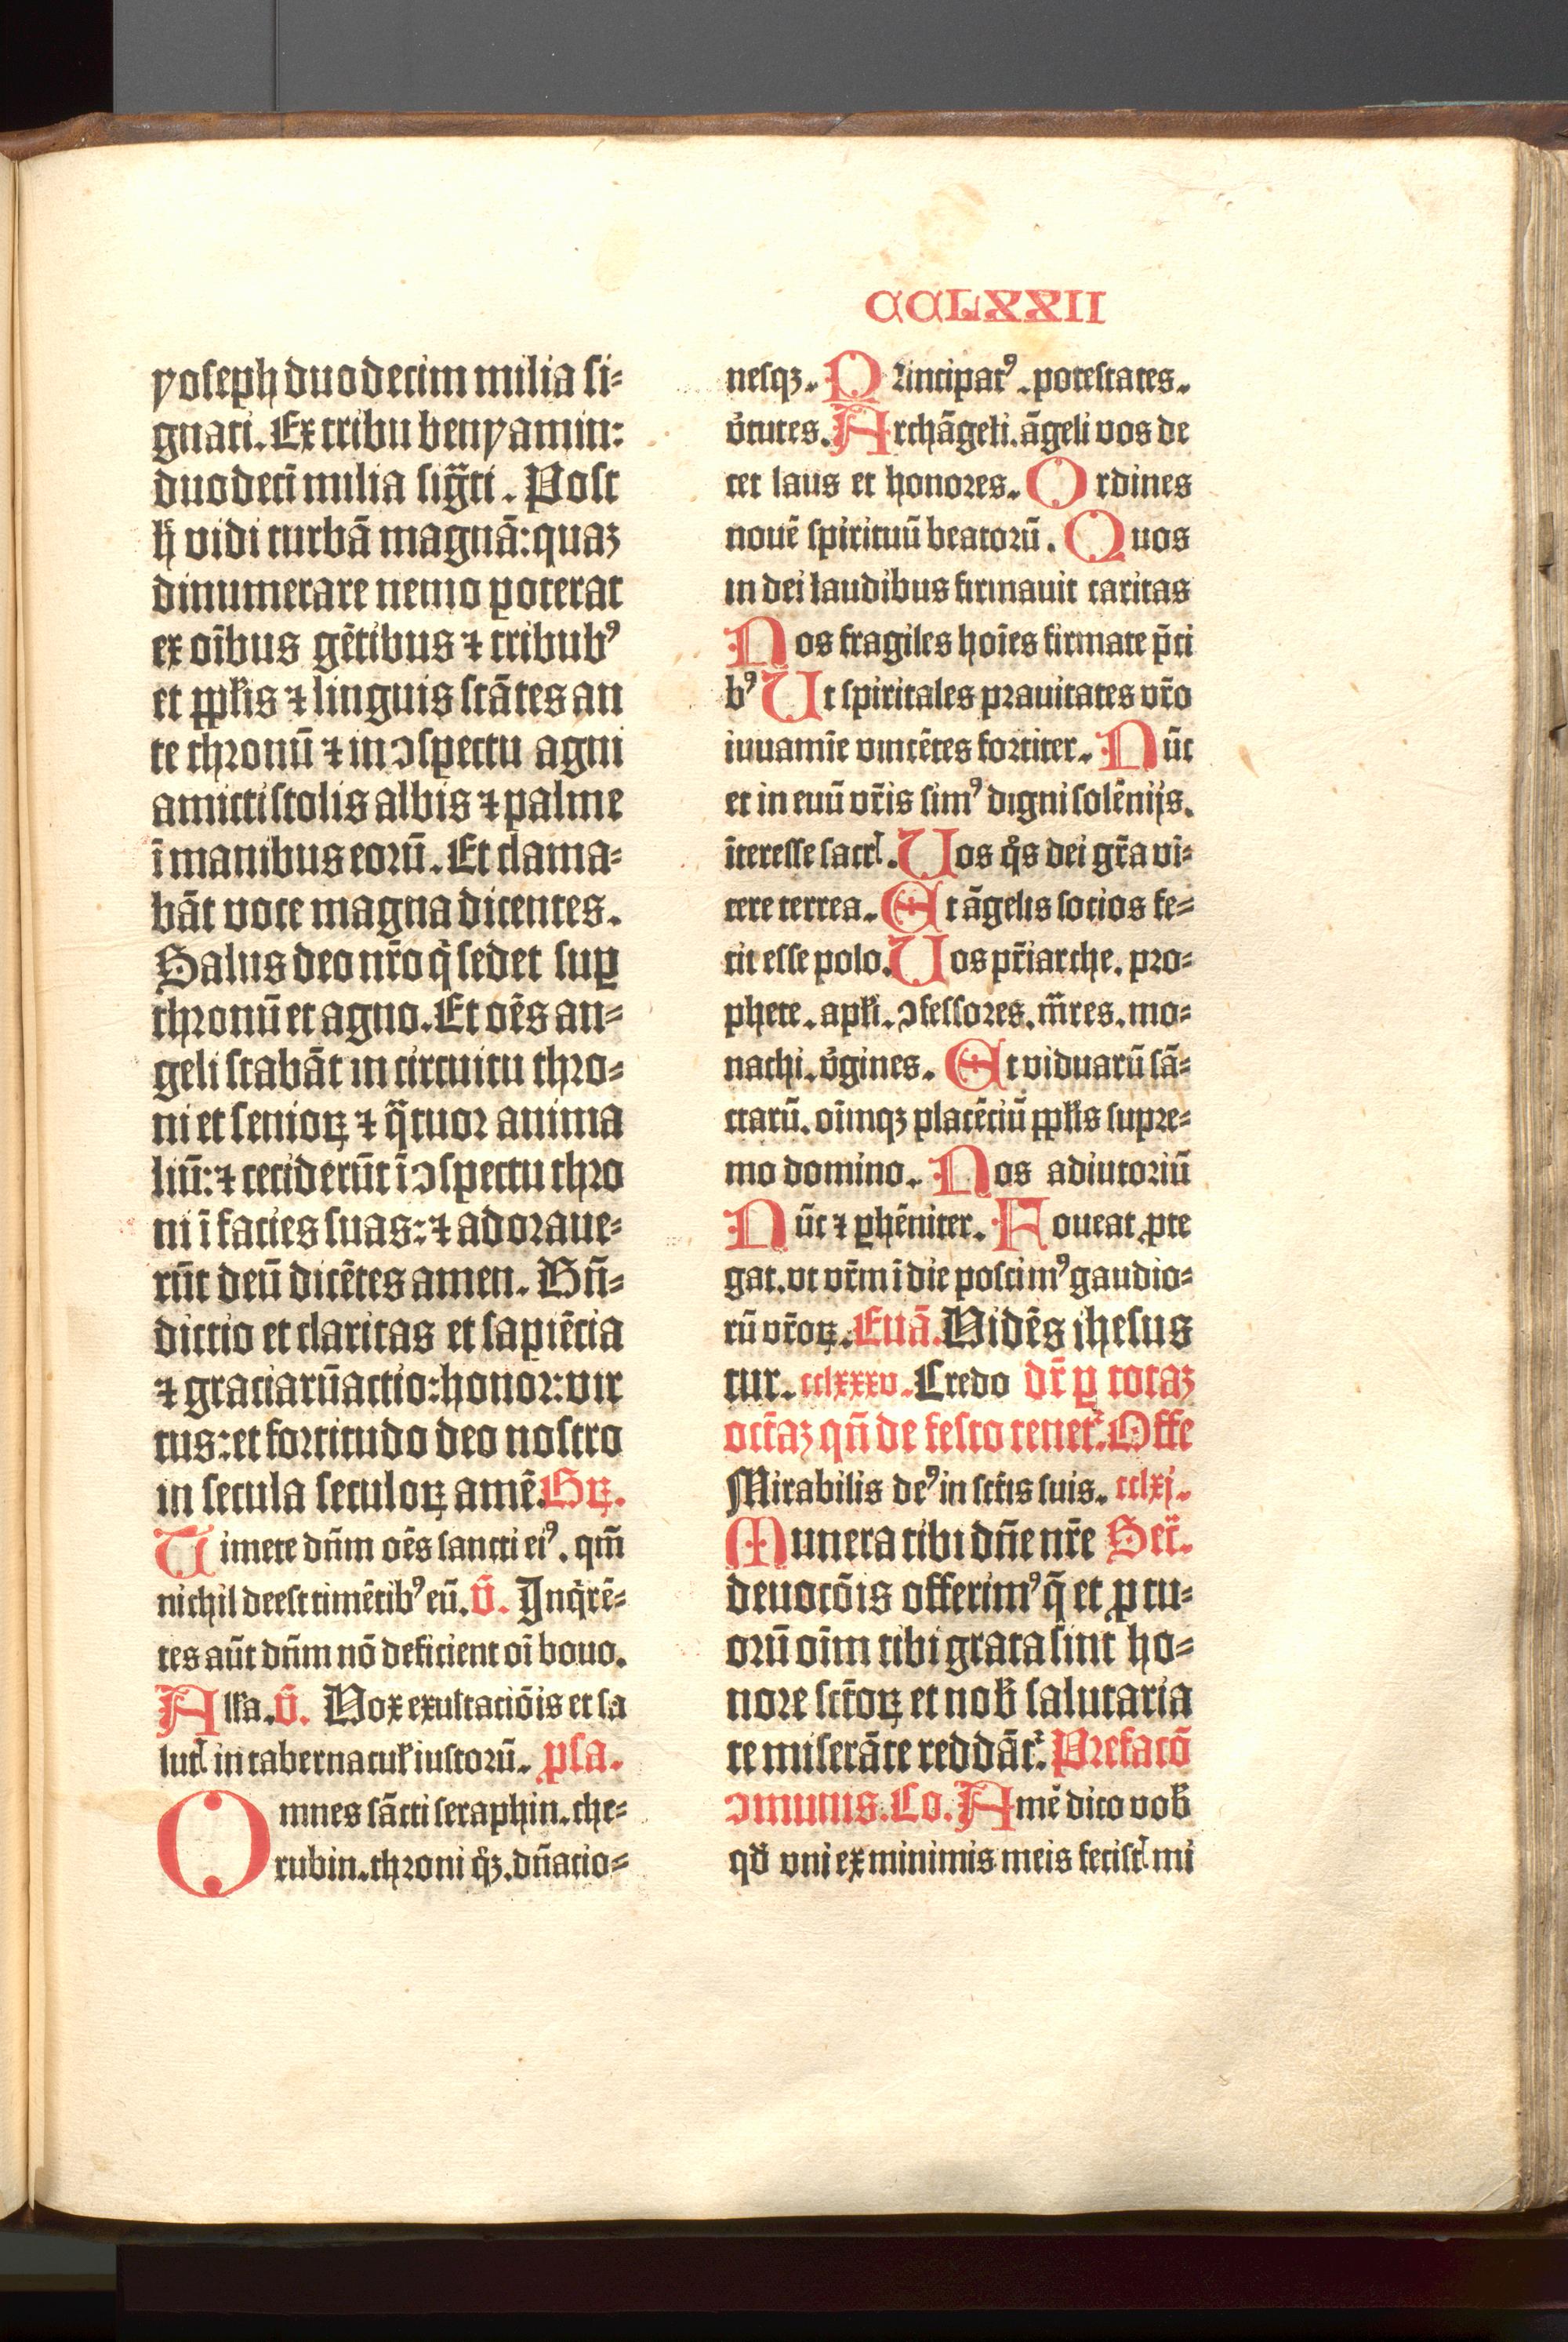 CCLXXII
yoseph duodecim milia si⸗
gnati. Ex tribu benyamin:
duodecī milia sig̃ti. Post
h̄ vidi turbā magnā: quaʒ
dinumerare nemo poterat
ex oībus gētibus ⁊ tribubꝰ
et ppl̄is ⁊ linguis stātes an
te thronū ⁊ in ↄspectu agni
amicti stolis albis ⁊ palme
ī manibus eorū. Et clama⸗
bāt voce magna dicentes.
Salus deo nr̄o q̇ sedet sup̱
thronū et agno. Et oēs an⸗
geli stabāt in circuitu thro⸗
ni et senioꝝ ⁊ q̈tuor anima
liū: ⁊ ceciderūt ī ↄspectu thro
ni ī facies suas: ⁊ adoraue⸗
rūt deū dicētes amen. Bn̄⸗
dictio et claritas et sapiēcia
⁊ graciarū actio: honor: vir
tus: et fortitudo deo nostro
in secula seculoꝝ amē. Gꝝ.
Timete dn̄m oēs sancti eiꝰ. qm̄
nichil deest timētibꝰ eū. v̄. Inq̇rē⸗
tes aūt dn̄m nō deficient oī bono.
All'a. v̄. Vox exultaciōis et sa
lut' in tabernacul' iustorū. psa.
Omnes sācti seraphin. che⸗
rubin. throni q̊ʒ. dn̄acio⸗
nesqʒ. Principatꝰ. potestates.
v̄tutes. Archāgeli. āgeli vos de
cet laus et honores. Ordines
nouē spirituū beatorū. Quos
in dei laudibus firmauit caritas
Nos fragiles hoīes firmate p̄ci
bꝰ Ut spiritales prauitates vr̄o
iuuamīe vincētes fortiter. Nūc
et in euū vr̄is simꝰ digni solēnijs.
īteresse sacr'. Uos q̊s dei gr̄a vī⸗
cere terrea. Et āgelis socios fe⸗
cit esse polo. Uos pr̄iarche. pro⸗
phete. apl'i. ↄfessores. m̄res. mo⸗
nachi. v̄gines. Et viduarū sā⸗
ctarū. oīmqʒ placēciū ppl̄s supre⸗
mo domino. Nos adiutoriū
Nūc ⁊ ꝑhēniter. Foueat ꝓte
gat. vt vr̄m ī die poscimꝰ gaudio⸗
rū vr̄oꝝ. Euā. Vidēs ihesus
tur. cclxxxv. Credo dr̄ ꝑ totaʒ
octāʒ qn̄ de festo tenet᷑. Offe
Mirabilis deꝰ in sct̄is suis. cclxj.
Munera tibi dn̄e nr̄e Sec̄.
deuotōis offerimꝰ q̄ et ꝓ tu⸗
orū oīm tibi grata sint ho⸗
nore sct̄oꝝ et nob̄ salutaria
te miserāte reddāt᷑. Prefatō
ↄmunis. Co. Amē dico vob̄
qd̄ vni ex minimis meis fecist' mi